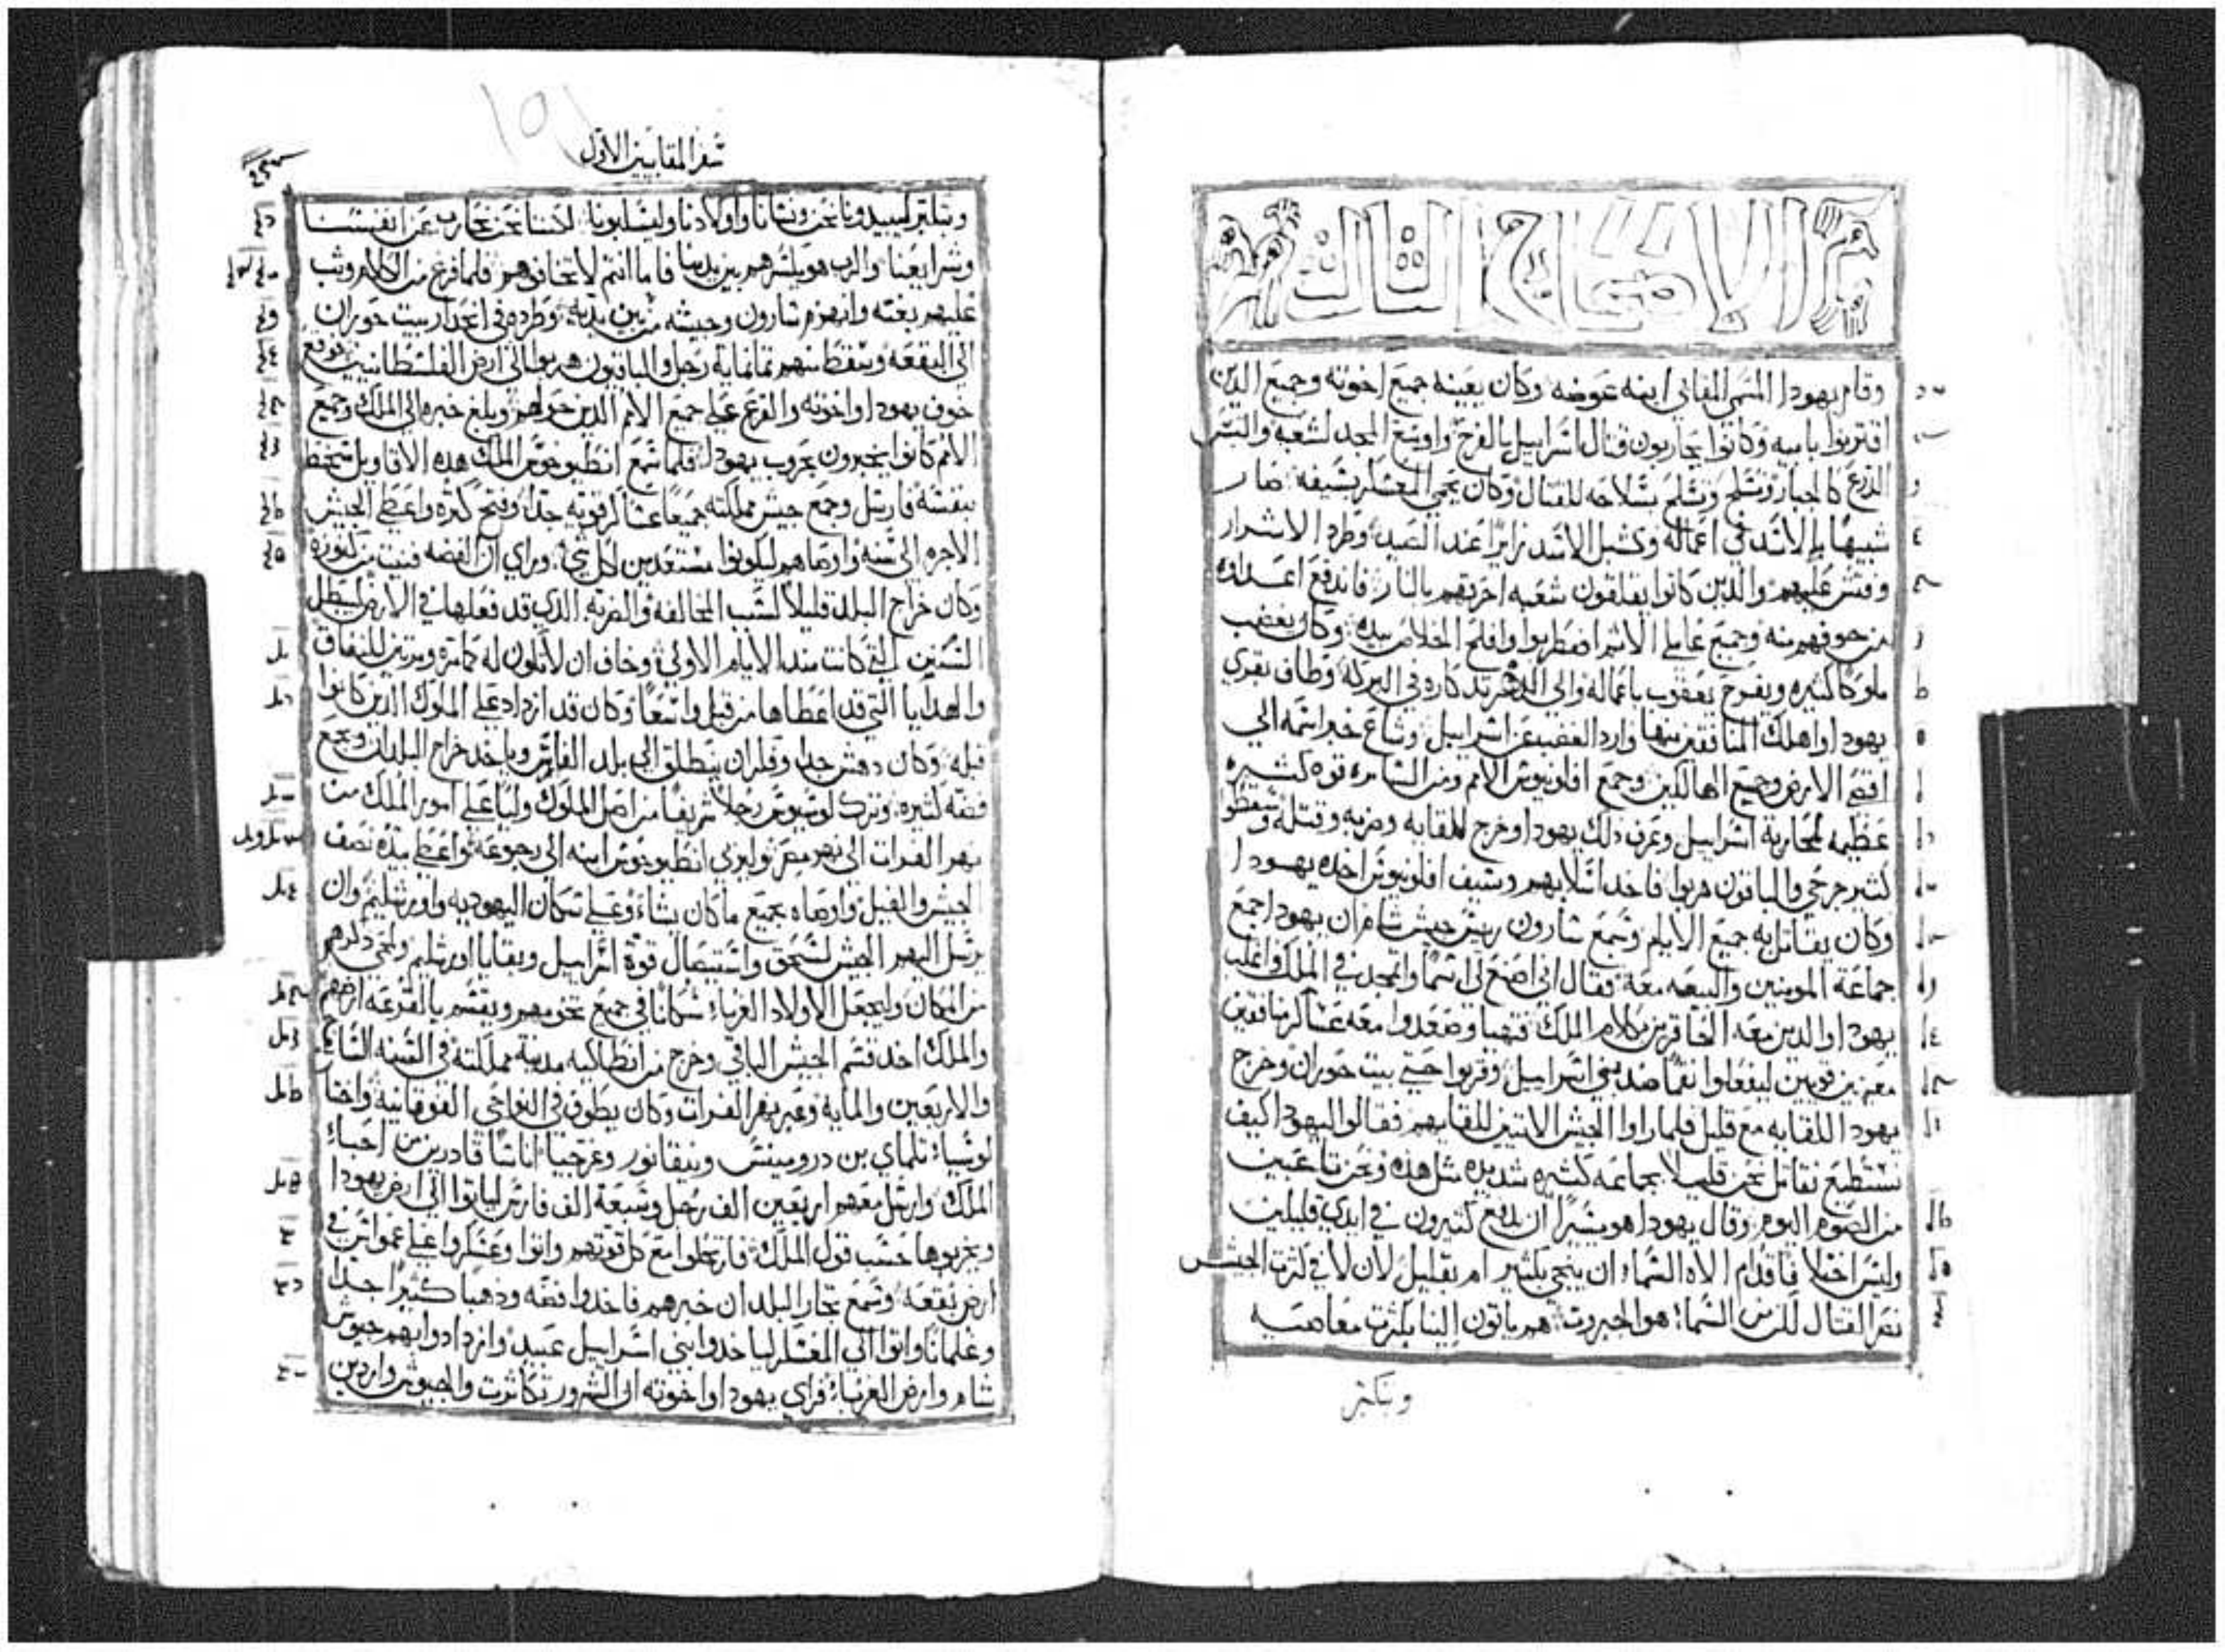 الاصحاح الثالث
وقام يهودا المسمى المقابي ابنه عوضه وكان يعينه جميع اخوته وجميع الدين
اقتربوا بابيه وكانوا يحاربون قتال اسراييل بالفرح واوسع المجد لشعبه والبس
الدرع كالجبار وتسلح بسلاحه للقتال وكان يحمي المعسكر بسيفه صار
شبيهًا بالاسد في اعماله وكشبل الاسد زايرًا عند الصيد وطرد الاشرار
وفتش عليهم والدين كانوا يقلقون شعبه احرقهم بالنار فاندفع اعداه
من خوفهم منه وجميع عاملي الاثم اضطربوا وافلح الخلاص بيده وكان يغضب
ملوكا كثيره ويفرح يعقوب باعماله والي الدهر تدكاره في البركه وطاف بقري
يهودا واهلك المنافقين منها وارد الغضب عن اسراييل وشاع خبر اسمه الي
اقصي الارض وجمع الهالكين وجمع افلونيوس الامم ومن السامره قوه كثيره
عظيمه لمحاربة اسراييل وعرف دلك يهودا وخرج للقايه وضربه وقتله وسقطو
كثير جرحي والباقون هربوا فاخد اسلابهم وسيف افلونيوس اخده يهودا
وكان يقاتل به جميع الايام وسمع سارون ريس جيش شام ان يهودا جمع
جماعة المومنين والبيعه معه فقال اني اصنع لي اسمًا واتمجد في الملك واغلب
يهودا والدين معه المحاقرين كلام الملك فتهيا وصعدوا معه عساكر منافقين
معينين قويين ليفعلوا نقمًا ضد بني اسراييل وقربوا حتي بيت حوران وخرج
يهودا للقايه مع قليل فلما راوا الجيش الاتيين للقايهم فقالوا ليهودا كيف
نستطيع نقاتل نحن قليلا بجماعه كثيره شديده مثل هذه ونحن تاعبين
من الصوم اليوم وقال يهودا هو يسيرًا ان يدفع كثيرون في ايدي قليلين
وليس اختلافا قدام الاه السما ان ينجي بكثير ام بقليل لان لا في كثرت الجيش
نصر القتال لكن من السما هو الجبروت هم ياتون الينا بكثرت معاصيه
وبتكبر
سفر المقابيين الاول
وبتكبر ليبيدونا نحن ونسانا واولادنا وليسلبونا لكننا نحن نحارب عن انفسنا
وشرايعنا والرب هو يكسرهم بين يدينا فاما انتم لا تخافوهم فلما فرغ من الكلام وثب
عليهم بغته وانهزم سارون وجيشه من بين يديه وطرده في انحدار بيت حوران
الي البقعه وسقط منهم تمانمايه رجل والباقون هربوا الي ارض الفلسطانيين فوقع
خوف يهودا واخوته والفزع علي جميع الامم الدين حولهم وبلغ خبره الي الملك وجميع
الامم كانوا يخبرون بحروب يهودا فلما سمع انطيوخوس الملك هده الاقاويل سخط
بنفسه فارسل وجمع جيش مملكته جميعًا عساكر قويه جدًا وفتح كنزه واعطي الجيش
الاجره الي سنه واوصاهم ليكونوا مستعدين لكل شي وراي ان الفضه فنيت من كنوزه
وكان خراج البلد قليلاً لسبب المخالفه والضربه الدي قد فعلها في الارض ليبطل
السنن التي كانت مند الايام الاولي وخاف ان لا يكون له كمامره ومرتين للنفاق
والهدايا التي قد اعطاها من قبل واسعًا وكان قد ازداد علي الملوك الدين كانوا
قبله وكان دهش جدا وفكر ان ينطلق الي بلد الفارس وياخد خراج البلدان ويجمع
فضه كثيره وترك لوسيوس رجلاً شريفا من اصل الملوك وليا علي امور الملك من
نهر الفرات الي نهر مصر وليربي انطيوخوس ابنه الي رجوعه واعطي بيده نصف
الجيش والفيل واوصاه بجميع ما كان يشاء وعلي سكان اليهوديه واورشليم وان
يرسل اليهم الجيش لسحق واستيصال قوة اسراييل وبقايا اورشليم ولمحي دكرهم
من المكان وليجعل الاولاد الغرباء سكانًا في جميع تخومهم ويقسم بالقرعه ارضهم
والملك اخد قسم الجيش الباقي وخرج من انطاكيه مدينة مملكته في السنه السابعه
والاربعين والمايه وعبر نهر الفرات وكان يطوف في النواحي الفوقانيه واختار
لوسيا تلماي بن درومينس ونيقانور وغرجيا اناسًا قادرين من احباء
الملك وارسل معهم اربعين الف رجل وسبعة الف فارس لياتوا الي ارض يهودا
ويخربوها حسب قول الملك فارتحلوا مع كل قوتهم واتوا وعسكروا علي عمواس في
ارض بقعه وسمع تجار البلدان خبرهم فاخدوا فضه ودهبا كثيرا جدا
وغلمانًا واتوا الي المعسكر لياخدوا بني اسراييل عبيد وازدادوا بهم جيوش
شام وارض الغرباء فراي يهودا واخوته ان الشرور تكاثرت والجيوش واردين